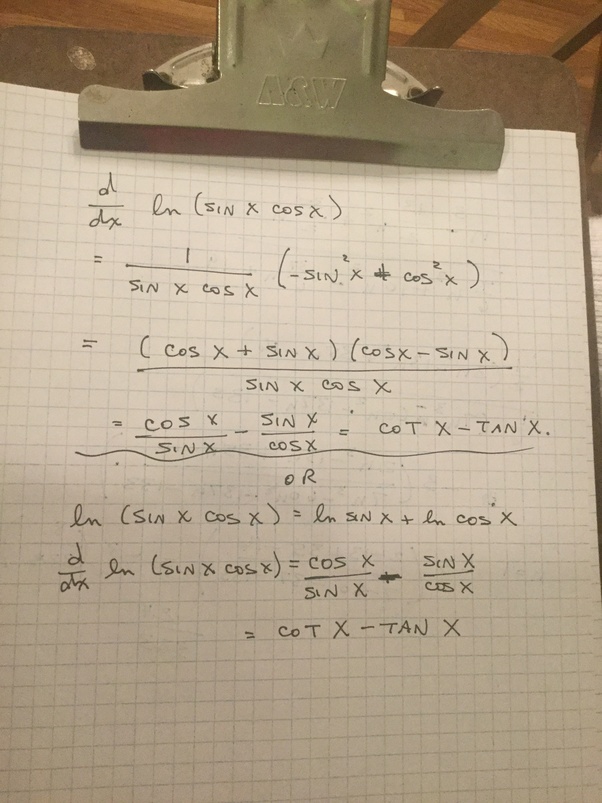 A&W
d/dx ln (SIN X COS X)
= 1/(SIN X COS X) (-SIN²X + COS²X)
= ((COS X + SIN X) (COS X - SIN X))/(SIN X COS X)
= COS X/SIN X - SIN X/COS X = COT X - TAN X.
OR
ln (SIN X COS X) = ln SIN X + ln COS X
d/dx ln (SIN X COS X) = COS X/SIN X - SIN X/COS X
= COT X - TAN X